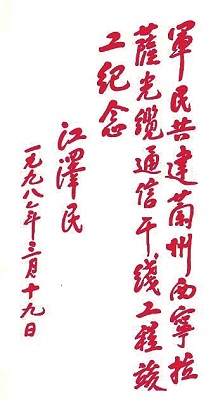 軍民共建蘭州西寧拉
薩光缆通信干线工程竣
工纪念
江澤民
一九九八年三月十九日